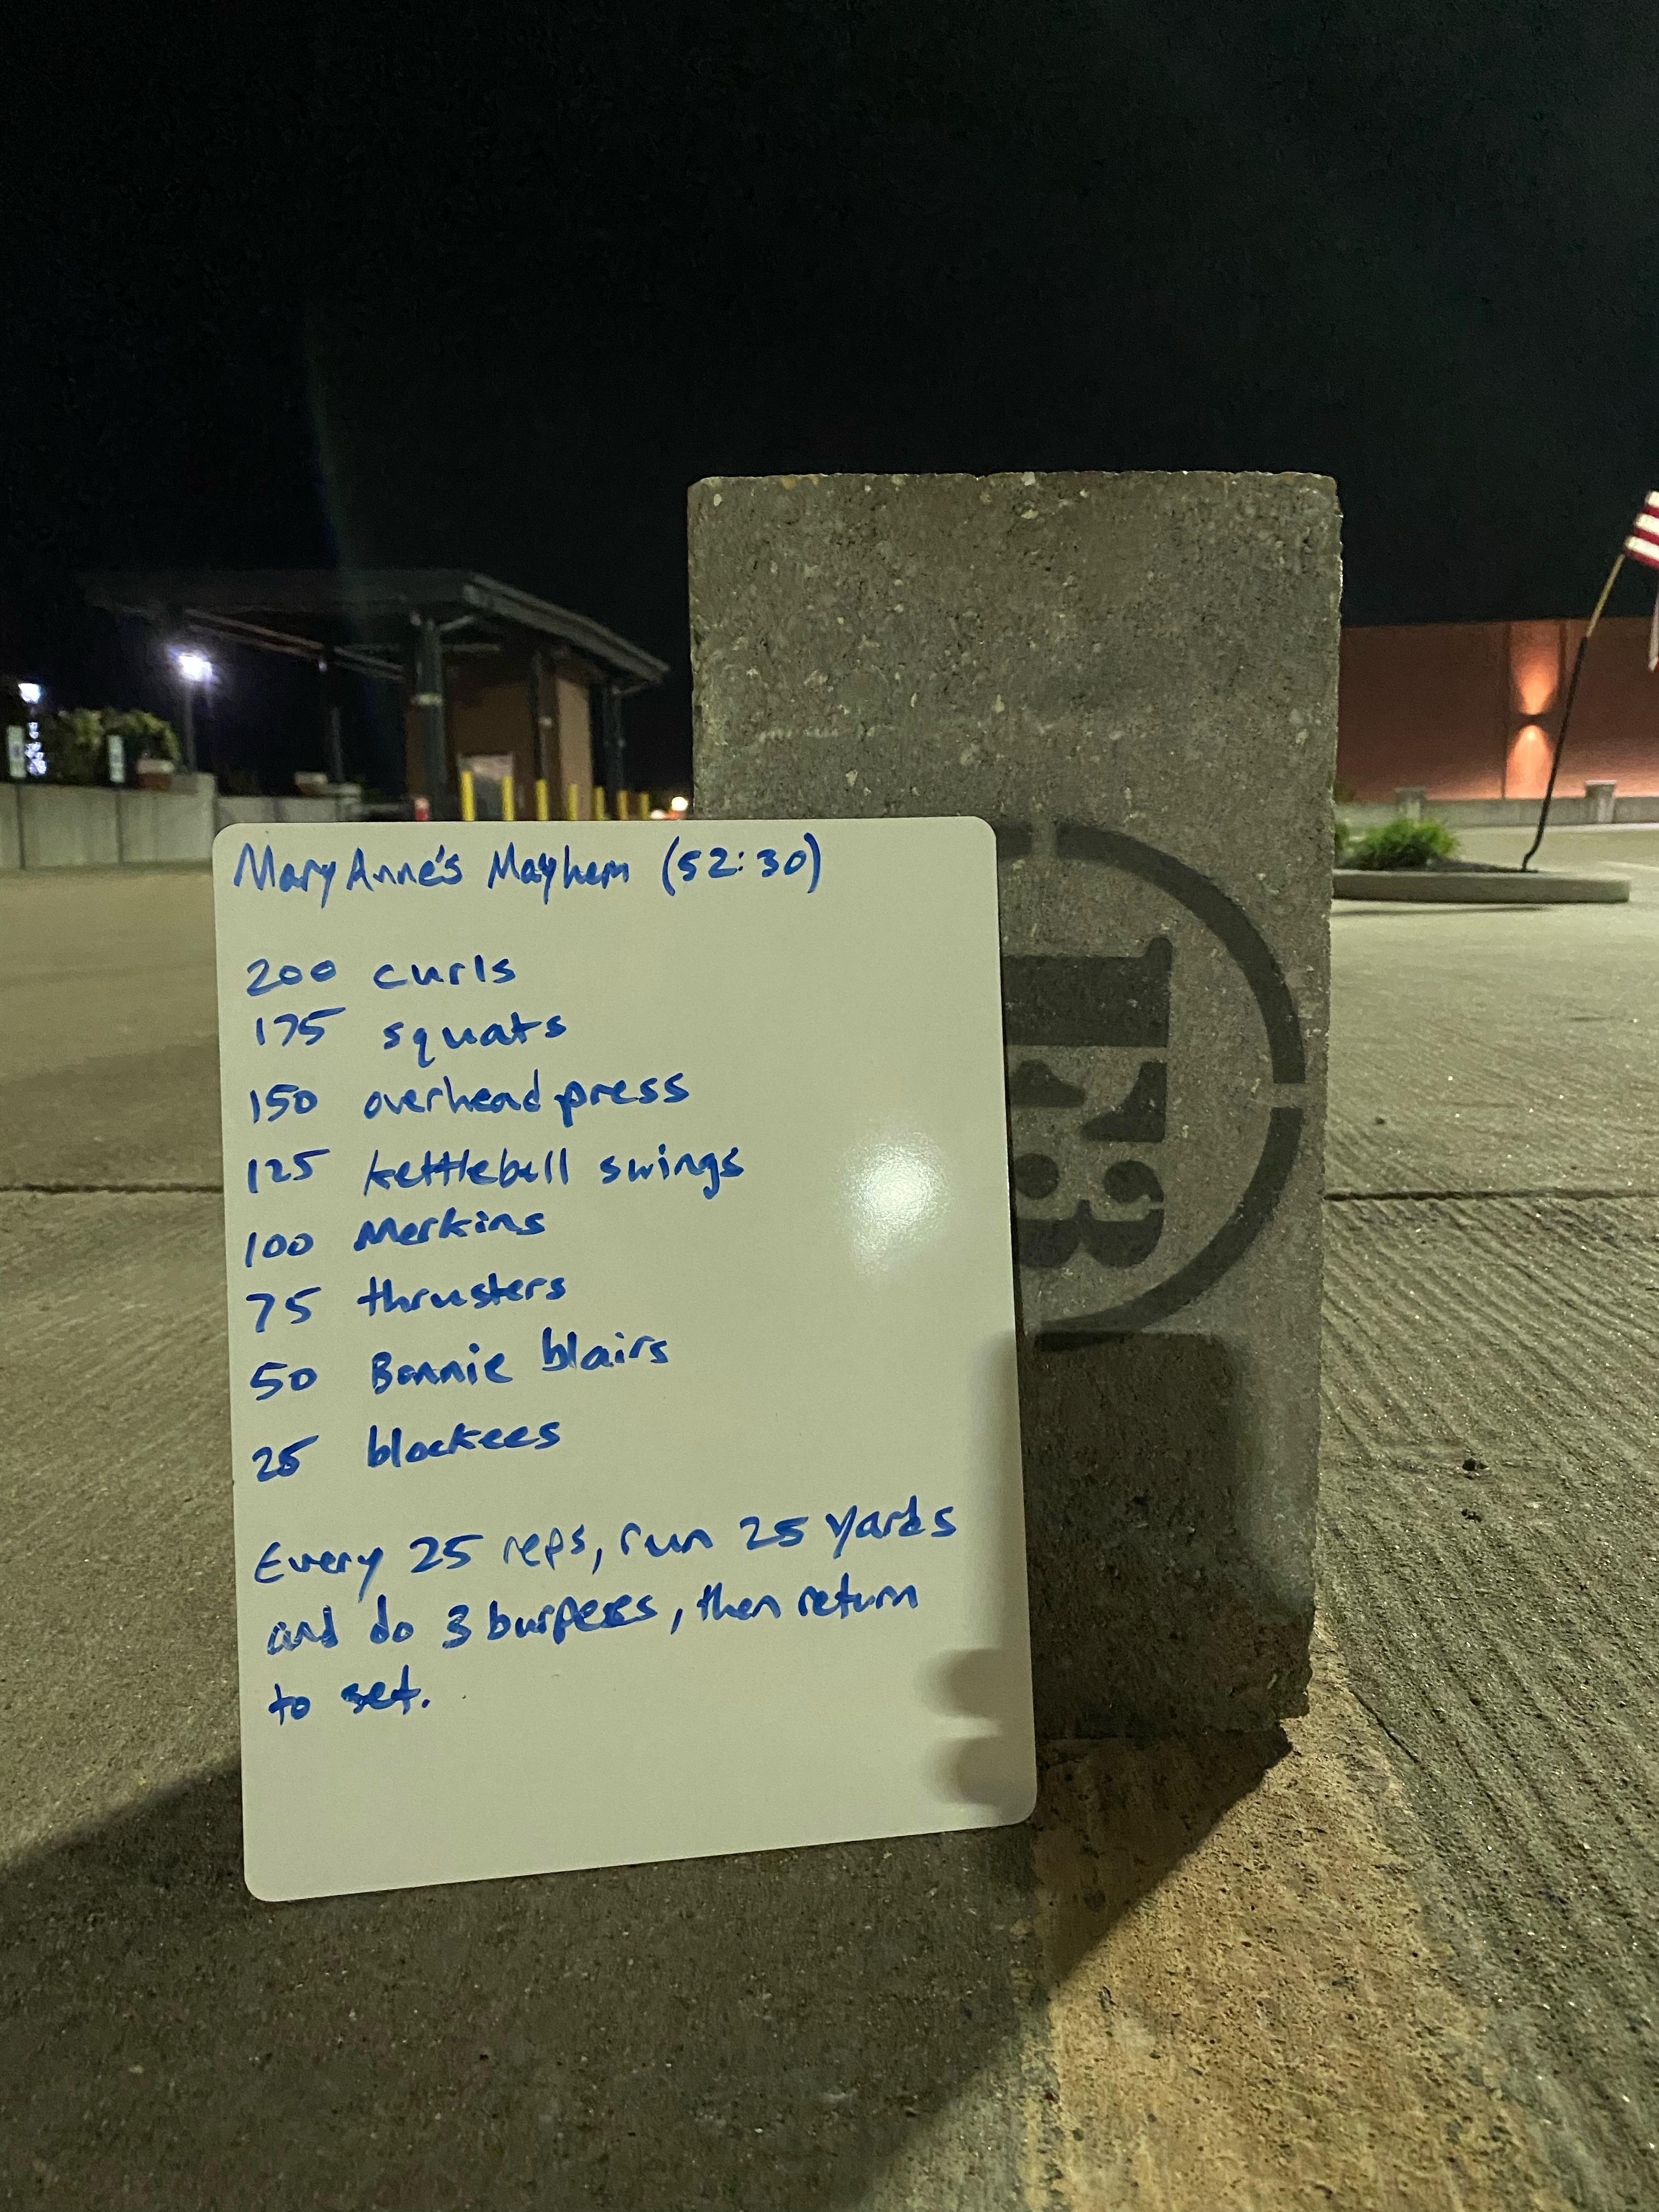 Mary Anne's Mayhem (52:30)
200 curls
175 squats
150 overhead press
125 kettlebell swings
100 Merkins
75 thrusters
50 Bonnie blairs
25 blockees
Every 25 reps, run 25 yards
and do 3 burpees, then return
to set.
F3